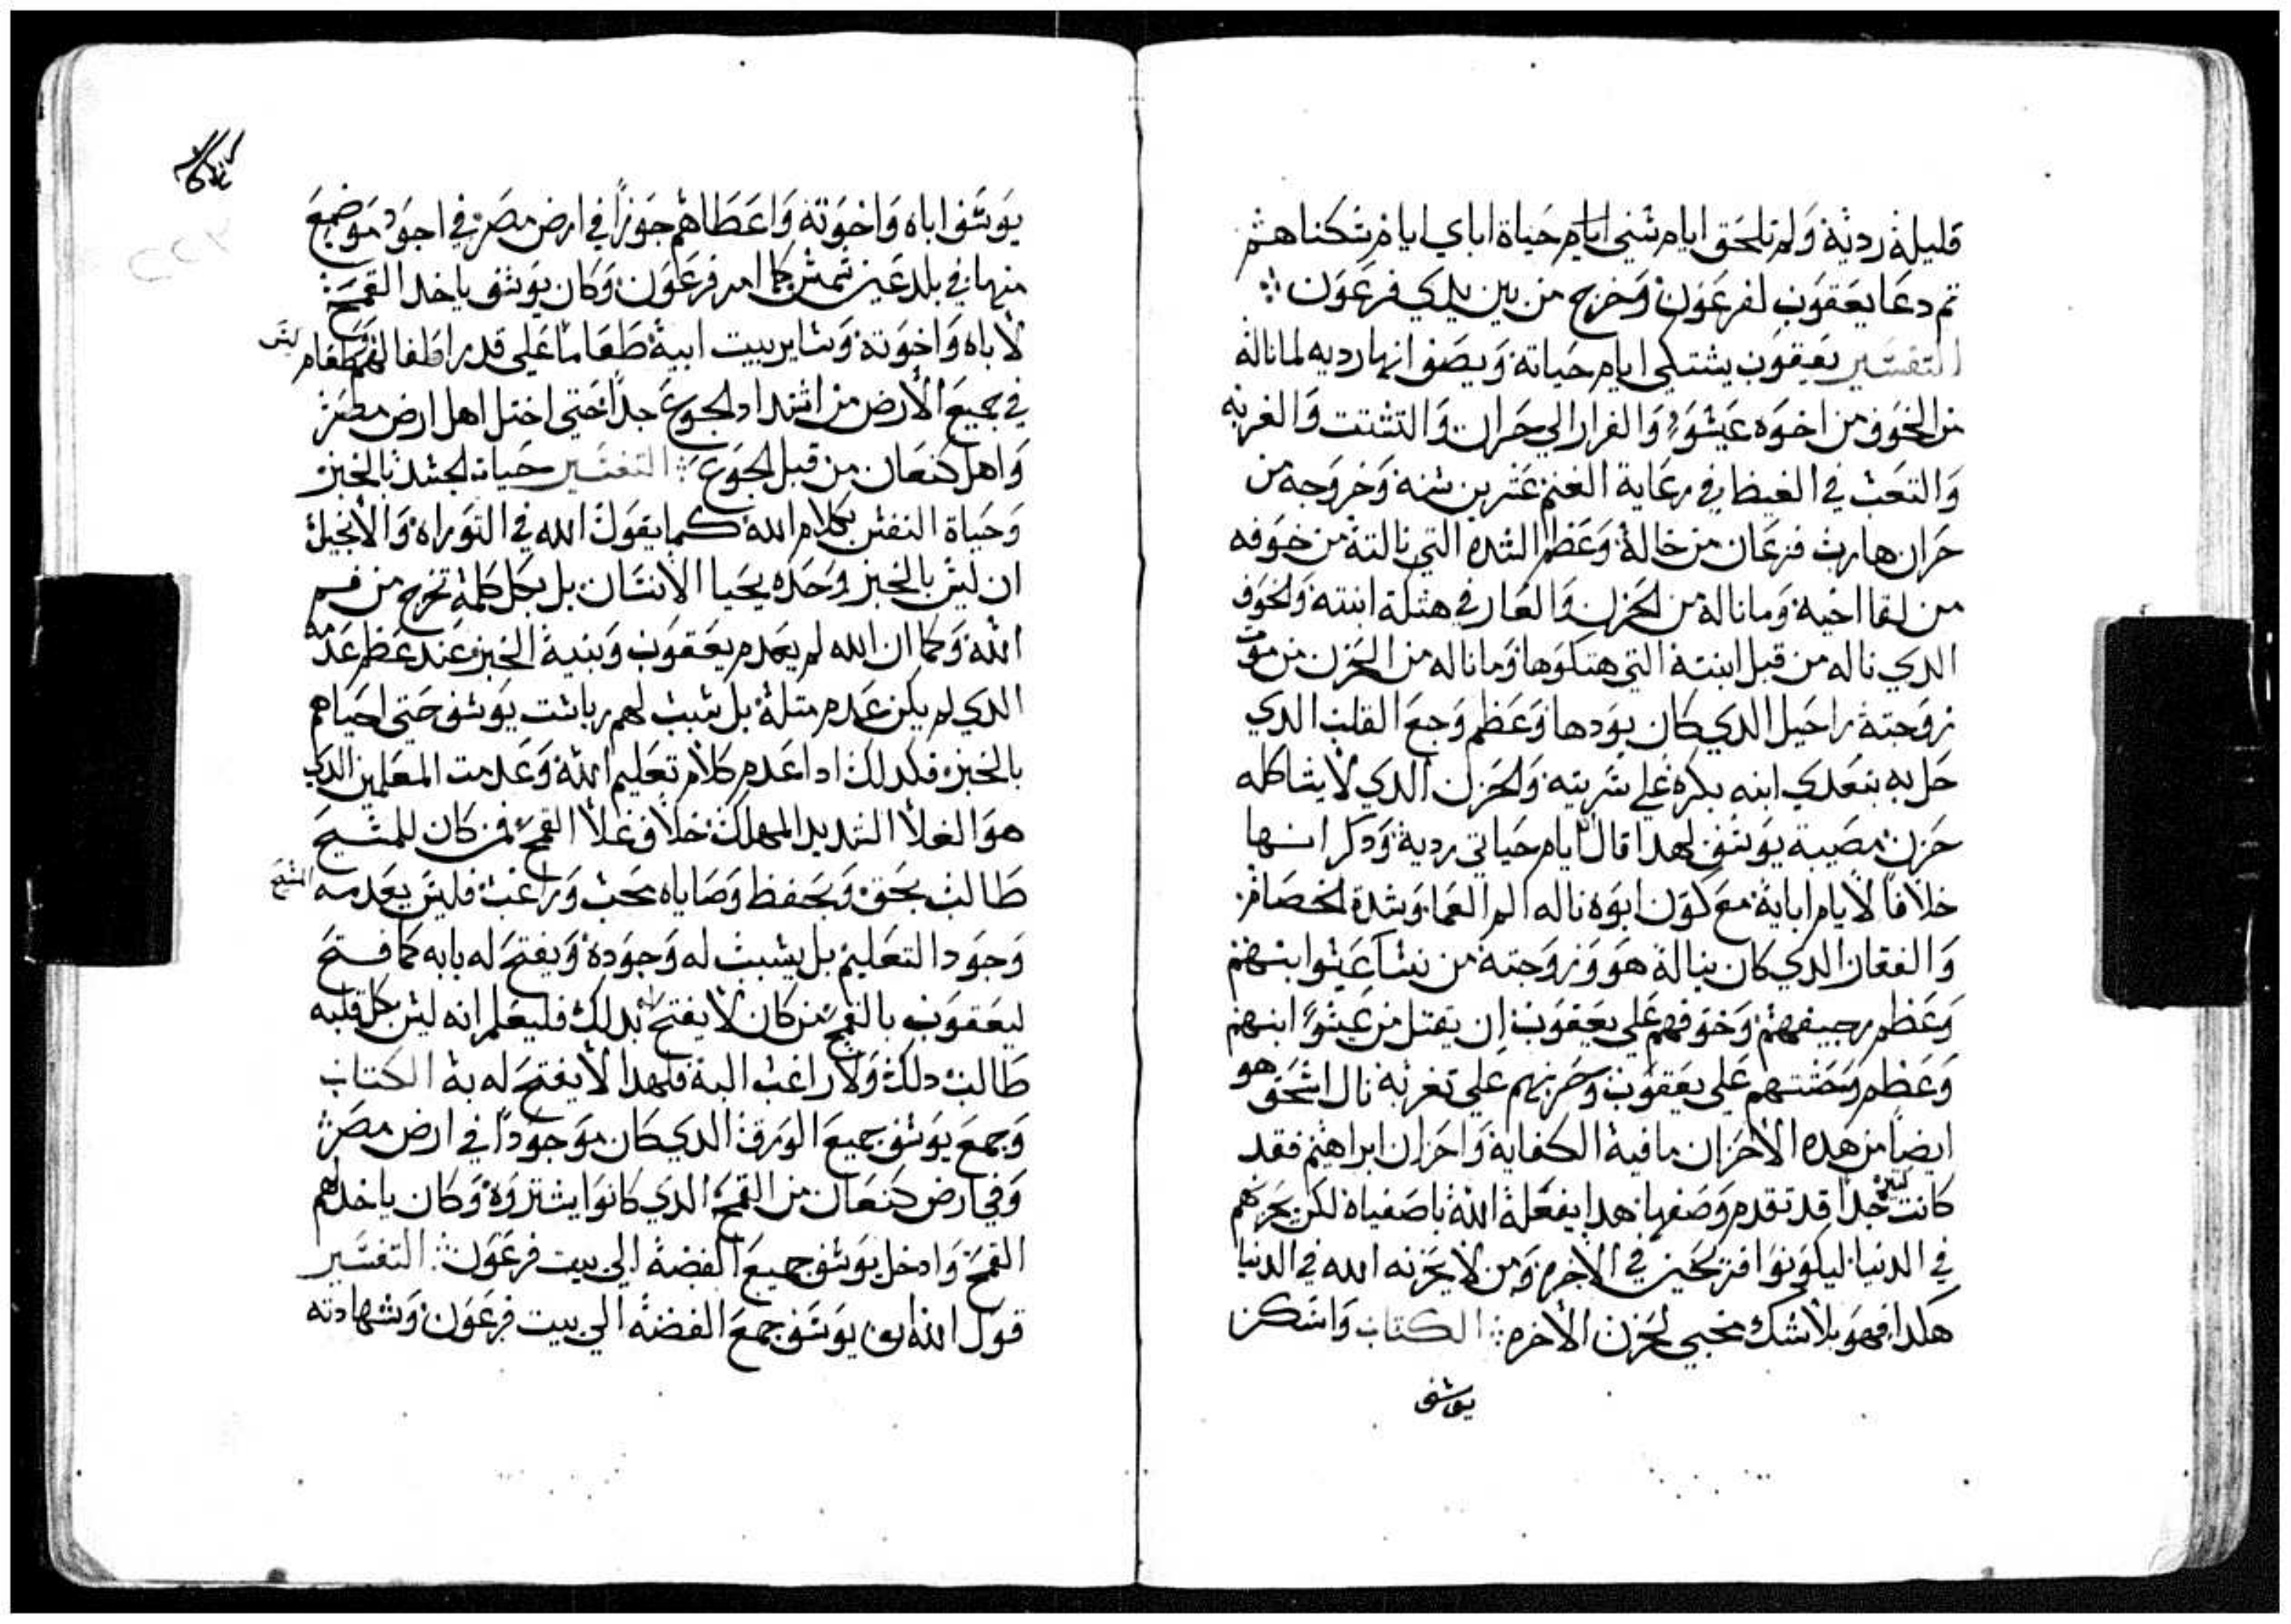 قليلة ردية ولم تلحق ايام سني ايام حياة اباي ايام سكناهم
تم دعا يعقوب لفرعون وخرج من بين يدي فرعون
التفسير يعقوب يشتكي ايام حياته ويصف انها رديه لما ناله
من الخوف من اخوه عيسو والفرار الي حران والتشتت والغربه
والتعب في الغيظ في رعاية الغنم عشرين سنه وخروجه من
حران هارب فزعان من خاله وعظم الشده التي نالته من خوفه
من لقا اخيه وما ناله من الحزن والعار في هتكة ابنته والخوف
الدي ناله من قبل ابنته التي هتكوها وما ناله من الحزن من موت
زوجته راحيل الدي كان يودها وعظم وجع القلب الدي
حل به بتعدي ابنه بكره علي سريته والحزن الدي لا يشاكله
حزن مصيبة يوسف لهدا قال ايام حياتي ردية ودكر انها
خلافا لايام اباية مع كون ابوه ناله الم العما وشدة الخصام
والفقان الدي كان يناله هو وزوجته من نسا عيسوا ابنهم
وعظم رجيفهم وخوفهم علي يعقوب ان يقتل من عيسو ابنهم
وعظم وحشتهم علي يعقوب وحزنهم علي تغربه نال اسحق هو
ايضا من هده الاحزان ما فيه الكفاية واحزان ابراهيم فقد
كانت كبيره جدا قد تقدم وصفها هدا يفعله الله باصفياه لكن يحزنهم
في الدنيا ليكونوا فرحين في الاخره ومن لا يحزنه الله في الدنيا
هكدا فهو بلا شك مخبي لحزن الاخره الكتاب واسكن
يوسف
يوسف اباه واخوته واعطاهم جوزا في ارض مصر في اجود موضع
منها في بلد عين شمس كما امر فرعون وكان يوسف ياخد القمح
لاباه واخوته وساير بيت ابية طعاما علي قدر اطفالهم طعام ليس
في جميع الارض من اشتداد الجوع جدا حتي اختل اهل ارض مصر
واهل كنعان من قبل الجوع التفسير حياة الجسد بالخبز
وحياة النفس بكلام الله كما يقول الله في التوراه والانجيل
ان ليس بالخبز وحده يحيا الانسان بل بكل كلمة تخرج من فم
الله وكما ان الله لم يعدم يعقوب وبنية الخبز عند عظم عدمه
الدي لم يكن عدم متله بل سبب لهم رياست يوسف حتي احياهم
بالخبز فكدلك ادا عدم كلام تعليم الله وعدمت المعلمين الدي
هو الغلا الشديد المهلك خلاف غلا القمح فمن كان للمسيح
طالب بحق وبحفظ وصاياه محب وراغب فليس يعدمه المسيح
وجود التعليم بل يسبب له وجوده ويفتح له بابه كما فتح
ليعقوب بالقمح من كان لا يفتح له بدلك فليعلم انه ليس بكل قلبه
طالب دلك ولا راغب البة فلهدا لا يفتح له به الكتاب
وجمع يوسف جميع الورق الدي كان موجودا في ارض مصر
وفي ارض كنعان من القمح الدي كانوا يشتروه وكان ياخد لهم
القمح وادخل يوسف جميع الفضه الي بيت فرعون التفسير
قول الله ان يوسف جمع الفضه الي بيت فرعون وشهادته